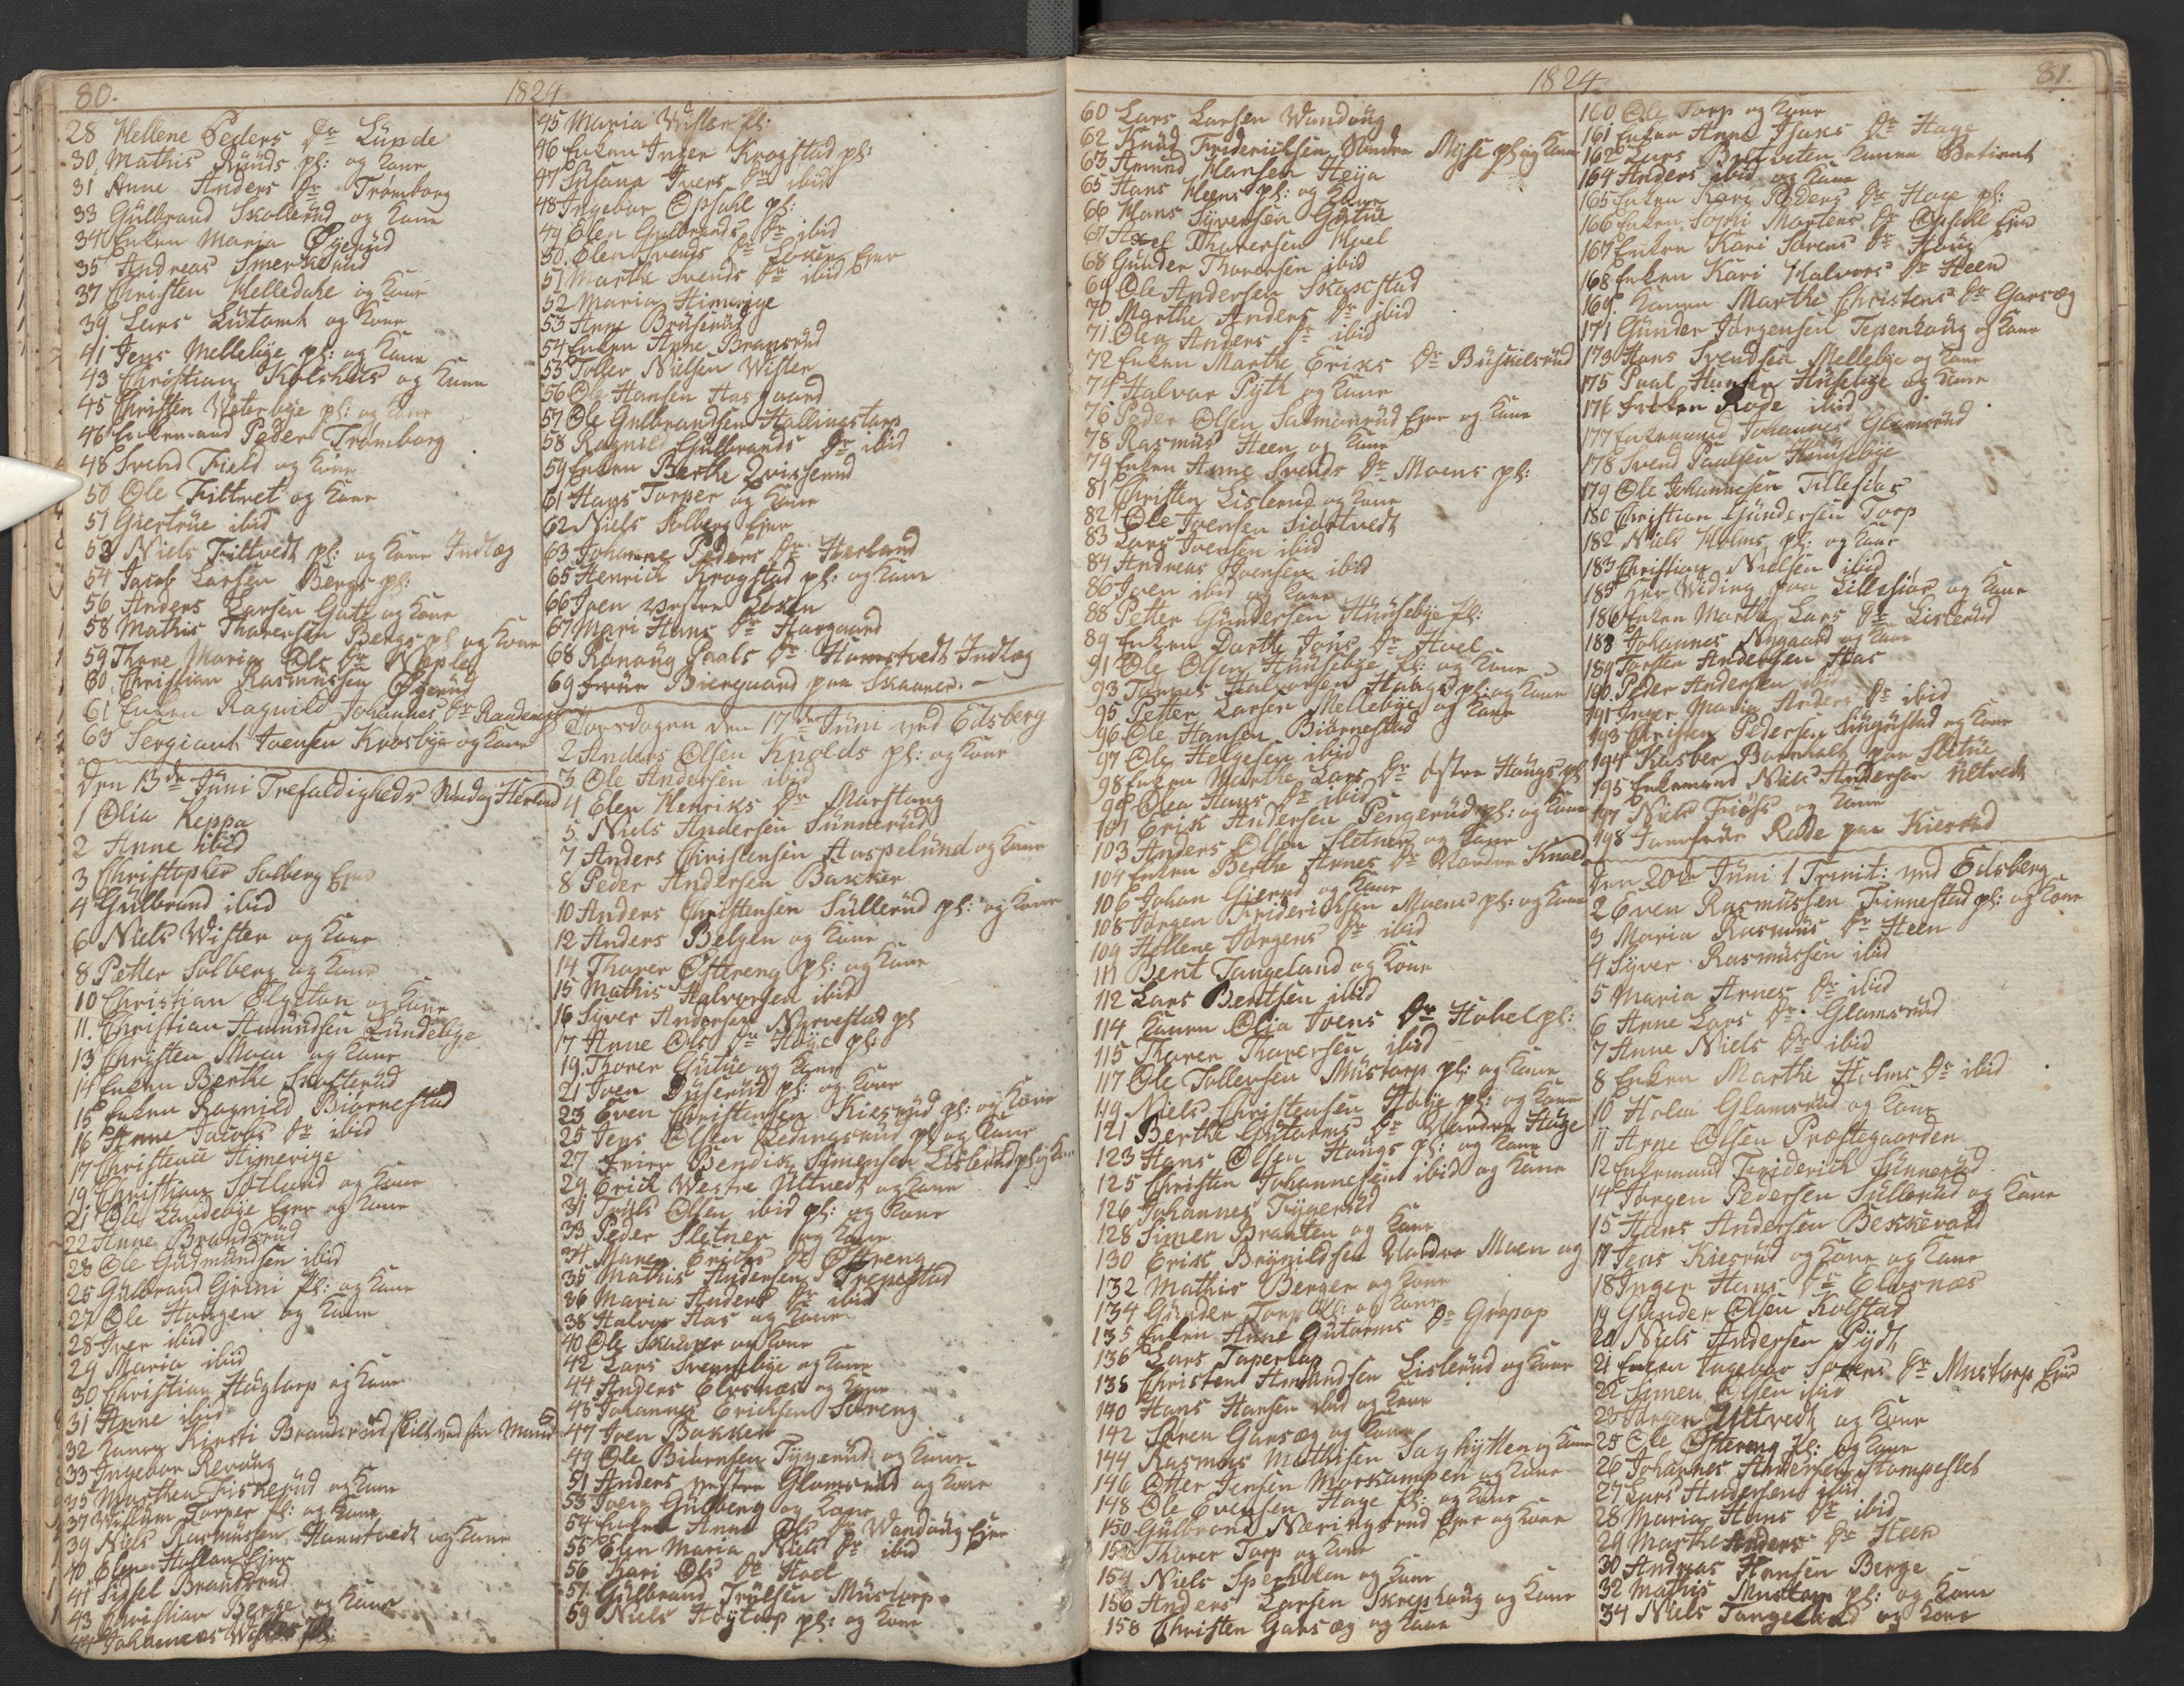 80.
1824
28 Hellene Peders Dr Lunde
30 Mathis Ruuds pl: og Kone
31 Anne Anders Dr Tromborg
33 Gulbrand Skollerud og Kone
34 Enken Maria Øyerud
35 Andreas Smerkerud
37 Christen Helledahl og Kone
39 Lars Lutomt og Kone
41 Jens Mellebye pl: og Kone
43 Christian og Kone
45 Christen Veterbye pl: og Kone
46 Enkemand Peder Tromborg
48 Svend Field og Kone
50 Ole Filtvet og Kone
51 Giertrue ibid
53 Niels Filtvedt pl: og Kone Indlæg
54 Jacob Larsen Bergs pl:
56 Anders Larsen Gate og Kone
58 Mathis Thoresen Bergs pl og Kone
59 Thore Maria Ols Dr
60 Christian Rasmussen Øyerud
61 Enken Ragnild Johannes Dr
63 Sergiant Ivensen Krosbye og Kone
Den 13de Juni Trefoldigheds Søndag Herland
1 Olia Keppa
2 Anne ibid
3 Christopher Solberg Ejer
4 Gulbrand ibid
6 Niels Wister og Kone
8 Petter Solberg og Kone
10 Christian Elgeton og Kone
11. Christian Amundsen Lundebye
13 Christen Moen og Kone
14 Enken Berthe Skofterud
15 Enken Ragnild Biørnestad
16 Anne Jacobs Dr ibid
17 Christence Himerige
19 Christian Sotlund og Kone
21 Ole Lundebye Ejer og Kone
22 Anne Brandsrud
23 Ole Gudmundsen ibid
25 Gulbrand Grini pl: og Kone
27 Ole Haugen og Kone
28 Iver ibid
29 Maria ibid
30 Christian Høytorp og Kone
31 Anne ibid
32 Konen Kirsti Brandsrud skilt ved sin Mand
33 Ingebor Revoug
35 Marthea Fiskerud og Kone
37 William Torper pl: og Kone
39 Niels Rasmussen Hamstvedt og Kone
40 Elen Hallan Ejer
41 Sissel Brandsrud
43 Christian Berge og Kone
44 Johannes Wister pl:
45 Maria Wister pl:
46 Enken Inger Krogstad pl:
47 Susana Ivers Dr ibid
48 Ingebor Opsahl pl:
49 Elen Gulbrands Dr ibid
50. Elen Svends Dr Løken Ejer
51 Marthe Svends Dr ibid
52 Maria Himerige
53 Anne Bruserud
54 Enken Anne Bransrud
55 Toller Nielsen Wister
56 Ole Hansen Hasgaard
57 Ole Gulbrandsen Hallingstorp
58 Ragnild Gulbrands Dr ibid
59 Enken Berthe Qviserud
61 Hans Torper og Kone
62 Niels Solberg Ejer
63 Johanne Peders Dr Herland
65 Henrich Krogstad pl: og Kone
66 Iven Vestre Løken
67 Mari Hans Dr Hasgaard
68 Ranaug Paals Dr Hamstvedt Indlæg
69 Fruue Biergaard paa Skaarer.
Torsdagen den 17de Juni ved Eidsberg
2 Anders Olsen Knolds pl: og Kone
3 Ole Andersen ibid
4 Elen Henriks Dr Marstang
5. Niels Andersen Sunnerud
7 Anders Christensen Haspelund og Kone
8 Peder Andersen Bakker
10 Anders Christensen Sullerud pl: og Kone
12 Anders Belgen og Kone
14 Thorer Østereng pl: og Kone
15 Mathis Halvorsen ibid
16 Syver Andersen Narvestad pl
17 Anne Ols Dr Høye pl:
19. Thorer Gutue og Kone
21 Iven Duserud pl: og Kone
23 Even Christensen Kiesrud pl: og Kone
25 Jens Olsen Redingsrud pl og Kone
27 Bendik Simensen Lislerud pl og Kone
29 Erich Westre Ultvedt og Kone
31 Truls Olsen ibid pl: og Kone
33 Peder Sletner og Kone
34 Maren Erichs Dr Østreng
35 Mathis Andersen Trepestad
36 Maria Anders Dr ibid
38 Halvor Has og Kone
40 Ole Skaarer og Kone
42 Lars Svennebye og Kone
44 Anders Elvsnæs og Kone
45 Johannes Erichsen Søreng
47 Iven Bakken
49 Ole Biørnsen Tygerud og Kone
51 Anders vestre Glomsrud og Kone
53 Iver Gulberg og Kone
54 Enken Anne Ols Dr Wandaug Ejer
55 Elen Maria Niels Dr ibid
56 Kari Ols Dr Hoel
57. Gulbrand Trulsen Mustorp
59 Niels Høytorp pl: og Kone
1824
81.
60 Lars Larsen Wandaug
62 Knud Friderichsen Nordre Mysse pl og Kone
63 Amund Hansen Høya
65 Hans Heens pl: og Kone
66 Hans Syversen Gutue
67 Axel Thoresen Hoel
68 Gunder Thoresen ibid
69 Ole Andersen Skaxstad
70. Marthe Anders Dr ibid
71. Olea Anders Dr ibid
72 Enken Marthe Eriks Dr Buskelsrud
74 Halvor Pyth og Kone
76 Peder Olsen Salmonrud Ejer og Kone
78 Rasmus Heen og Kone
79 Enken Anne Svends Dr Moens pl:
81 Christen Lislerud og Kone
82 Ole Ivensen Sletvedt
83 Lars Ivensen ibid
84 Andreas Ivensen ibid
86 Iven ibid og Kone
88 Petter Gundersen Huusebye pl:
89 Enken Dorthe Jons Dr Hoel
91 Ole Olsen Huusebye pl: og Kone
93 Tønnes Halvorsen Haugs pl: og Kone
95 Petter Larsen Mellebye og Kone
96 Ole Hansen Biørnestad
97 Ole Helgesen ibid
98 Enken Marthe Lars Dr østre Haugs pl
99 Olea Hans Dr ibid
101 Erik Andersen Pengerud pl: og Kone
103 Anders Olsen Sletner og Kone
104 Enken Berthe Arnes Dr Nordre Knold
106 Johan Gierud og Kone
108 Jørgen Friderichsen Moens pl: og Kone
109 Hellene Jørgens Dr ibid
111 Bent Tangeland og Kone
112 Lars Bentsen ibid
114 Konen Olia Ivens Dr Hobel pl:
115 Thorer Thoresen ibid
117 Ole Tollevsen Mustorp pl: og Kone
119 Niels Christensen Høye pl: og Kone
121 Berthe Gutorms Dr Nordre Hage
123 Hans Olsen Haugs pl: og Kone
125 Christen Johannesen ibid og Kone
126 Johannes Tygerud
128 Simen Braaten og Kone
130 Erik Brynildsen Nordre Moen og
132 Mathis Berger og Kone
134 Gunder Torp pl: og Kone
135 Enken Anne Gutorms Dr Grøpop
136 Lars Taperlap
138 Christen Amundsen Lislerud og Kone
140 Hans Hansen ibid og Kone
142 Søren Garsæg og Kone
144 Rasmus Mathisen Saghytten og Kone
146 Otter Jensen Morkampen og Kone
148 Ole Evensen Hage pl: og Kone
150 Gulbrand Næringsrud Ejer og Kone
152 Thorer Torp og Kone
154 Niels Sperholen og Kone
156 Anders Larsen Skrephaug og Kone
158 Christen Garsæg og Kone
160 Ole Torp og Kone
161 Enken Anne Isaks Dr Hage
162 Lars Bøltveten Konen Betient
164 Anders ibid og Kone
165 Enken Kari Peders Dr Hage pl:
166 Enken Sophi Mortens Dr Opsahl Ejer
167 Enken Kari Sørens Dr Haug
168 Enken Kari Halvors Dr Heen
169. Konen Marthe Christens Dr Garsæg
171 Gunder Jørgensen Tepenhaug og Kone
173 Hans Svendsen Mellebye og Kone
175 Poul Hansen Husebye og Kone
176 Frøken Rode ibid
177 Enkemand Johannes Glomsrud
178 Svend Paulsen Huusebye
179 Ole Johannesen Tillesiør
180 Christian Gundersen Torp
182 Niels Holms pl: og Kone
183 Christian Nielsen ibid
185 Her Widing paa Lillesiør og Kone
186 Enken Marthe Lars Dr Lislerud
188 Johannes Nygaard og Kone
189 Torsten Andersen Has
190. Peder Andersen ibid
191 Inger Maria Anders Dr ibid
193 Christen Pedersen Singustad og Kone
194 Kasber Barnholt paa Slitue
195 Enkemand Niels Andersen Ultvedt
197 Niels Friøs og Kone
198 Jomfrue Rode paa Kiersrud
Den 20de Juni 1 Trinit: ved Eidsberg
2 Even Rasmussen Finnestad pl: og Kone
3 Maria Rasmus Dr Heen
4 Syver Rasmussen ibid
5 Maria Arnes Dr ibid
6 Anne Lars Dr. Glamsrud
7 Anne Niels Dr ibid
8 Enken Marthe Holms Dr ibid
10 Holm Glamsrud og Kone
11 Arne Olsen Præstegaarden
12 Enkemand Friderich Sunnerud
14 Jørgen Pedersen Sullerud og Kone
15 Hans Andersen Bekkevold
17 Jens Kiesrud og Kone og Kone
18 Inger Hans Dr Elvernæs
19 Gunder Olsen Kolstad
20 Niels Andersen Pydt
21 Enken Ingebor Sørens Dr Mustorp Ejer
22 Simen Olsen ibid
23 Jørgen Ultvedt og Kone
25 Ole Østereng pl: og Kone
26 Johannes Andersen Stompeslet
27 Lars Andersen ibid
28 Maria Hans Dr ibid
29 Marthe Anders Dr Heen
30 Andreas Hansen Berge
32 Mathis Mustorp pl: og Kone
34 Niels Tangeland og Kone